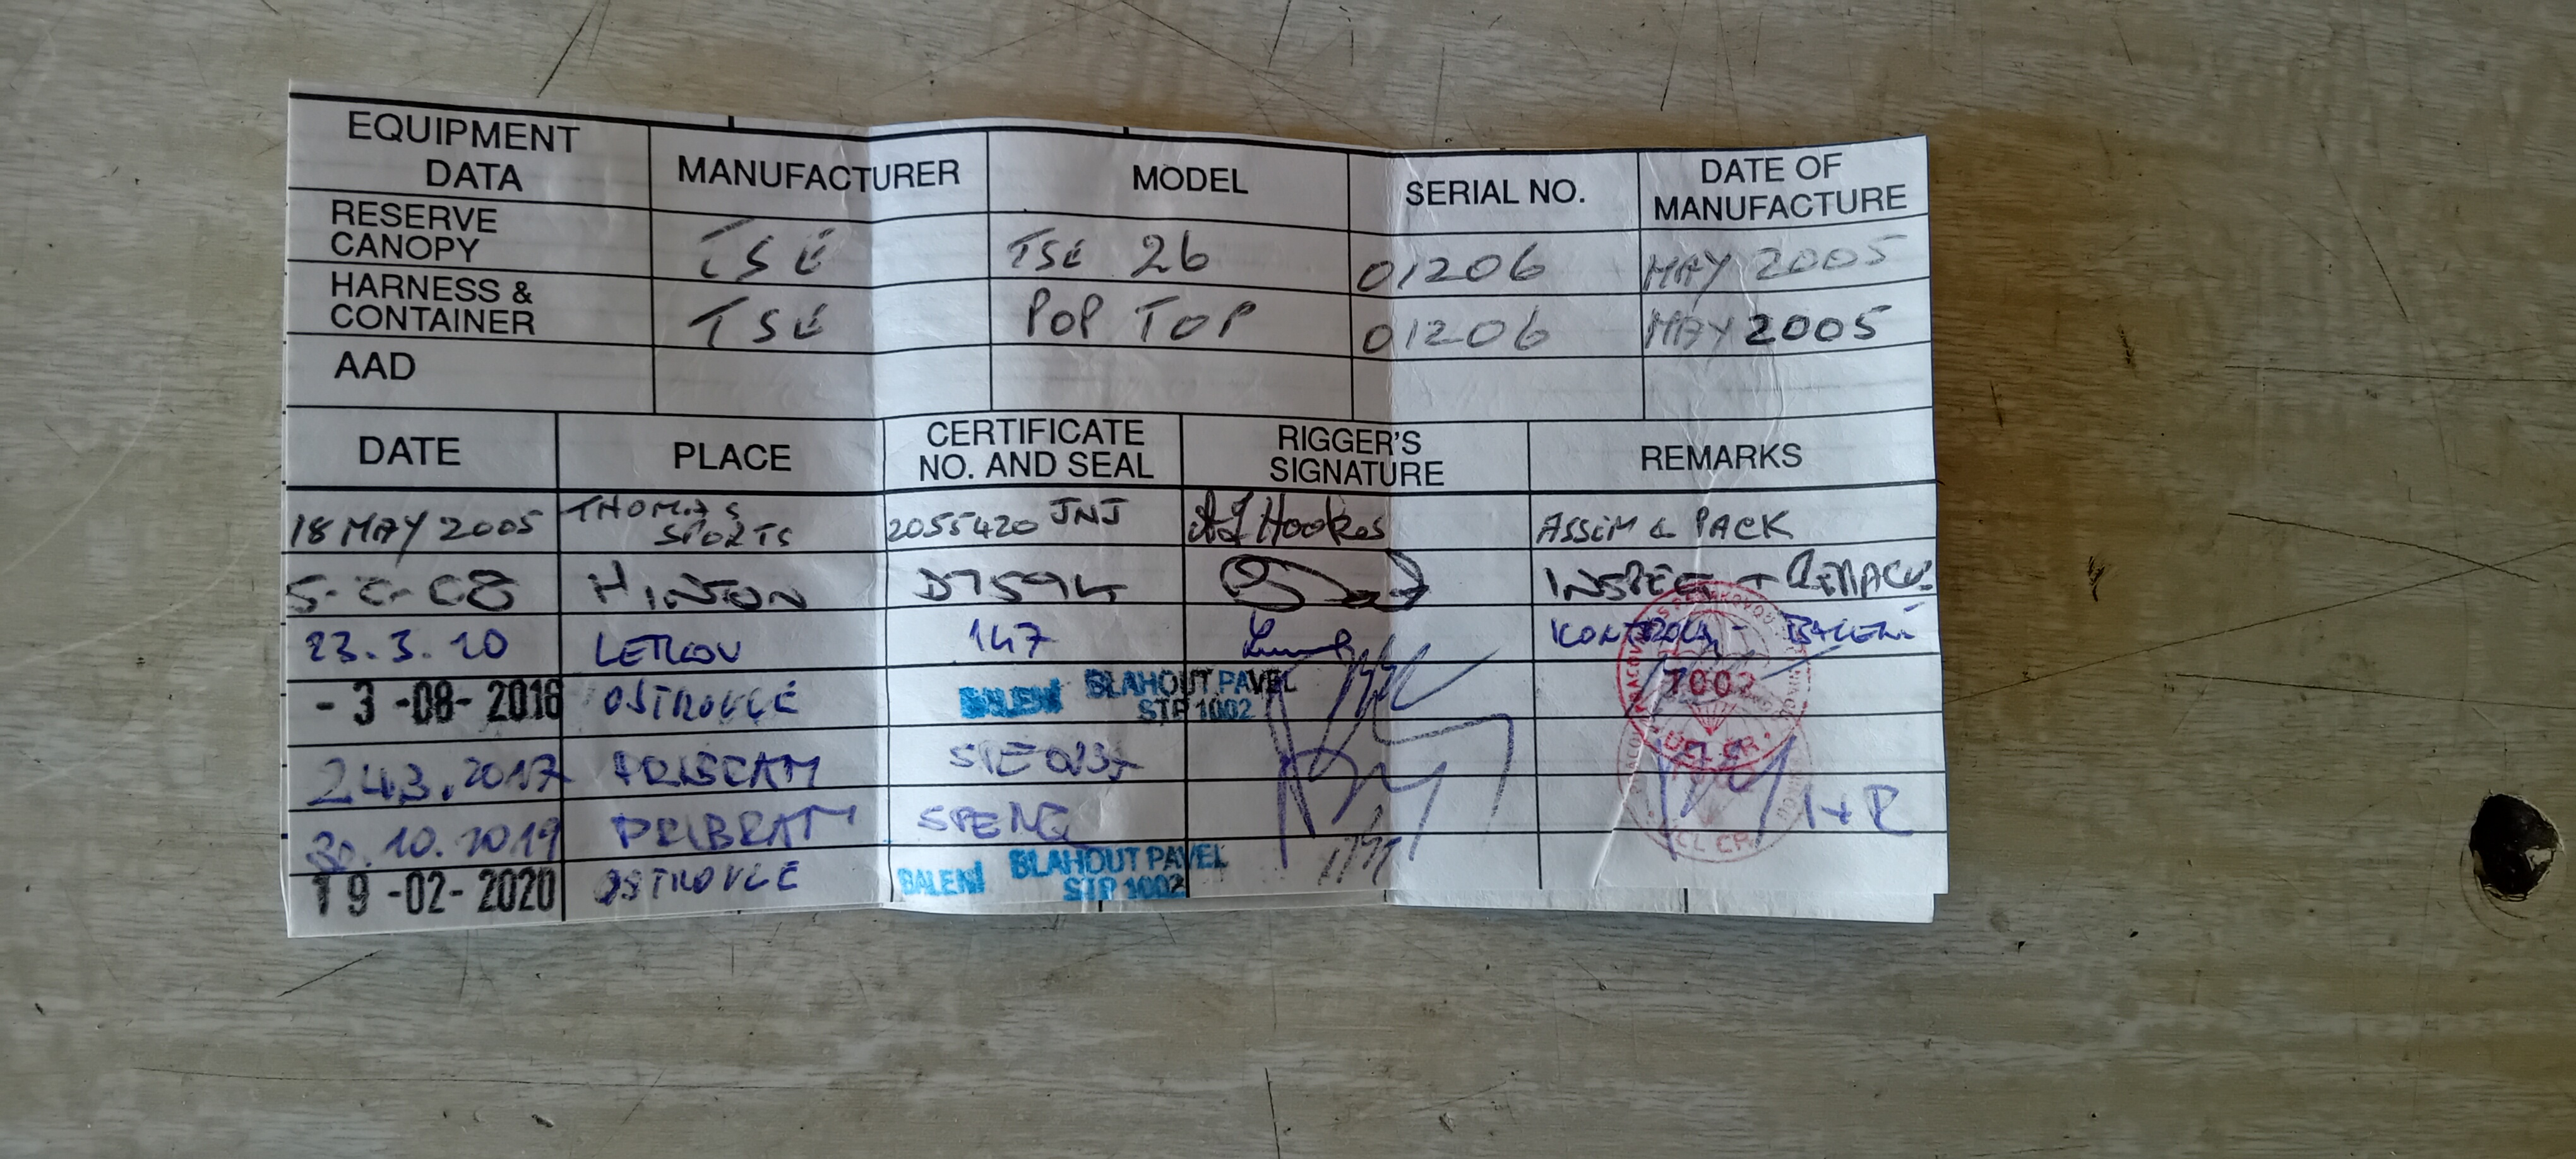 EQUIPMENT DATA MANUFACTURER MODEL SERIAL NO. DATE OF MANUFACTURE
RESERVE CANOPY TSE TSE 26 01206 MAY 2005
HARNESS & CONTAINER TSE POP TOP 01206 MAY 2005
AAD
DATE PLACE CERTIFICATE NO. AND SEAL RIGGER'S SIGNATURE REMARKS
18 MAY 2005 THOMAS SPORTS 2055420 JNJ Hookes ASSEM & PACK
HINTON INSPECT + REPACK
23.3.10 LETKOV 147 KONTROLA - BALENÍ
- 3 -08- 2016 OSTROVCE BALENÍ BLAHOUT PAVEL STP 1002
24.3.2017 PRIBRAM
30.10.2019 PRIBRAM I+R
19 -02- 2020 OSTROVCE BALENÍ BLAHOUT PAVEL STP 1002